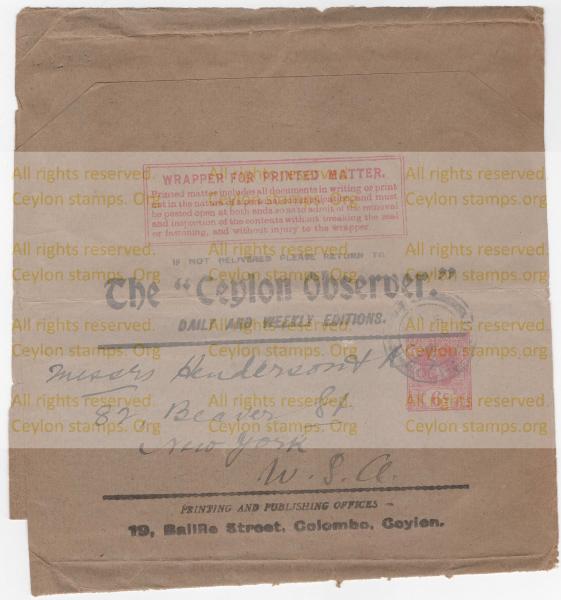 WRAPPER FOR PRINTED MATTER.
Printed matter includes all documents in writing or print
not in the nature of a personal communication, and must
be posted open at both ends so as to admit of the removal
and inspection of the contents without breaking the seal
or fastening, and without injury to the wrapper.
IF NOT DELIVERED PLEASE RETURN TO
The "Ceylon Observer."
DAILY AND WEEKLY EDITIONS.
Messrs Henderson &
82, Beaver St
New York
U. S. A.
PRINTING AND PUBLISHING OFFICES —
19, Baillie Street, Colombo, Ceylon.
All rights reserved. All rights reserved. All rights reserved. All rights reserved.
Ceylon stamps. Org Ceylon stamps. Org Ceylon stamps. Org Ceylon stamps. Org
All rights reserved. All rights reserved. All rights reserved. All rights reserved.
Ceylon stamps. Org Ceylon stamps. Org Ceylon stamps. Org Ceylon stamps. Org
All rights reserved. All rights reserved. All rights reserved. All rights reserved.
Ceylon stamps. Org Ceylon stamps. Org Ceylon stamps. Org Ceylon stamps. Org
All rights reserved. All rights reserved. All rights reserved. All rights reserved.
Ceylon stamps. Org Ceylon stamps. Org Ceylon stamps. Org Ceylon stamps. Org